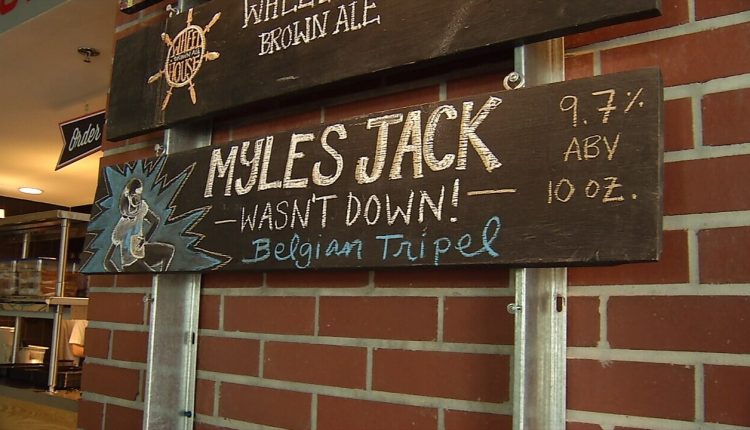 WHEEL
BROWN ALE
WHEEL
BROWN ALE
HOUSE
Order
MYLES JACK
9.7%
ABV
10 OZ.
— WASN'T DOWN! —
Belgian Tripel